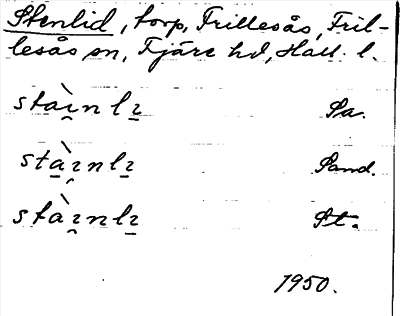 Stenlid, torp, Frillesås, Fril-
lesås sn, Fjäre hd, Hall. l.
stàɪ̯nlɪ̠ Sa.
stà̠ɪ̯nlɪ̠ Sand.
stàɪ̯nlɪ̠ St.
1950.